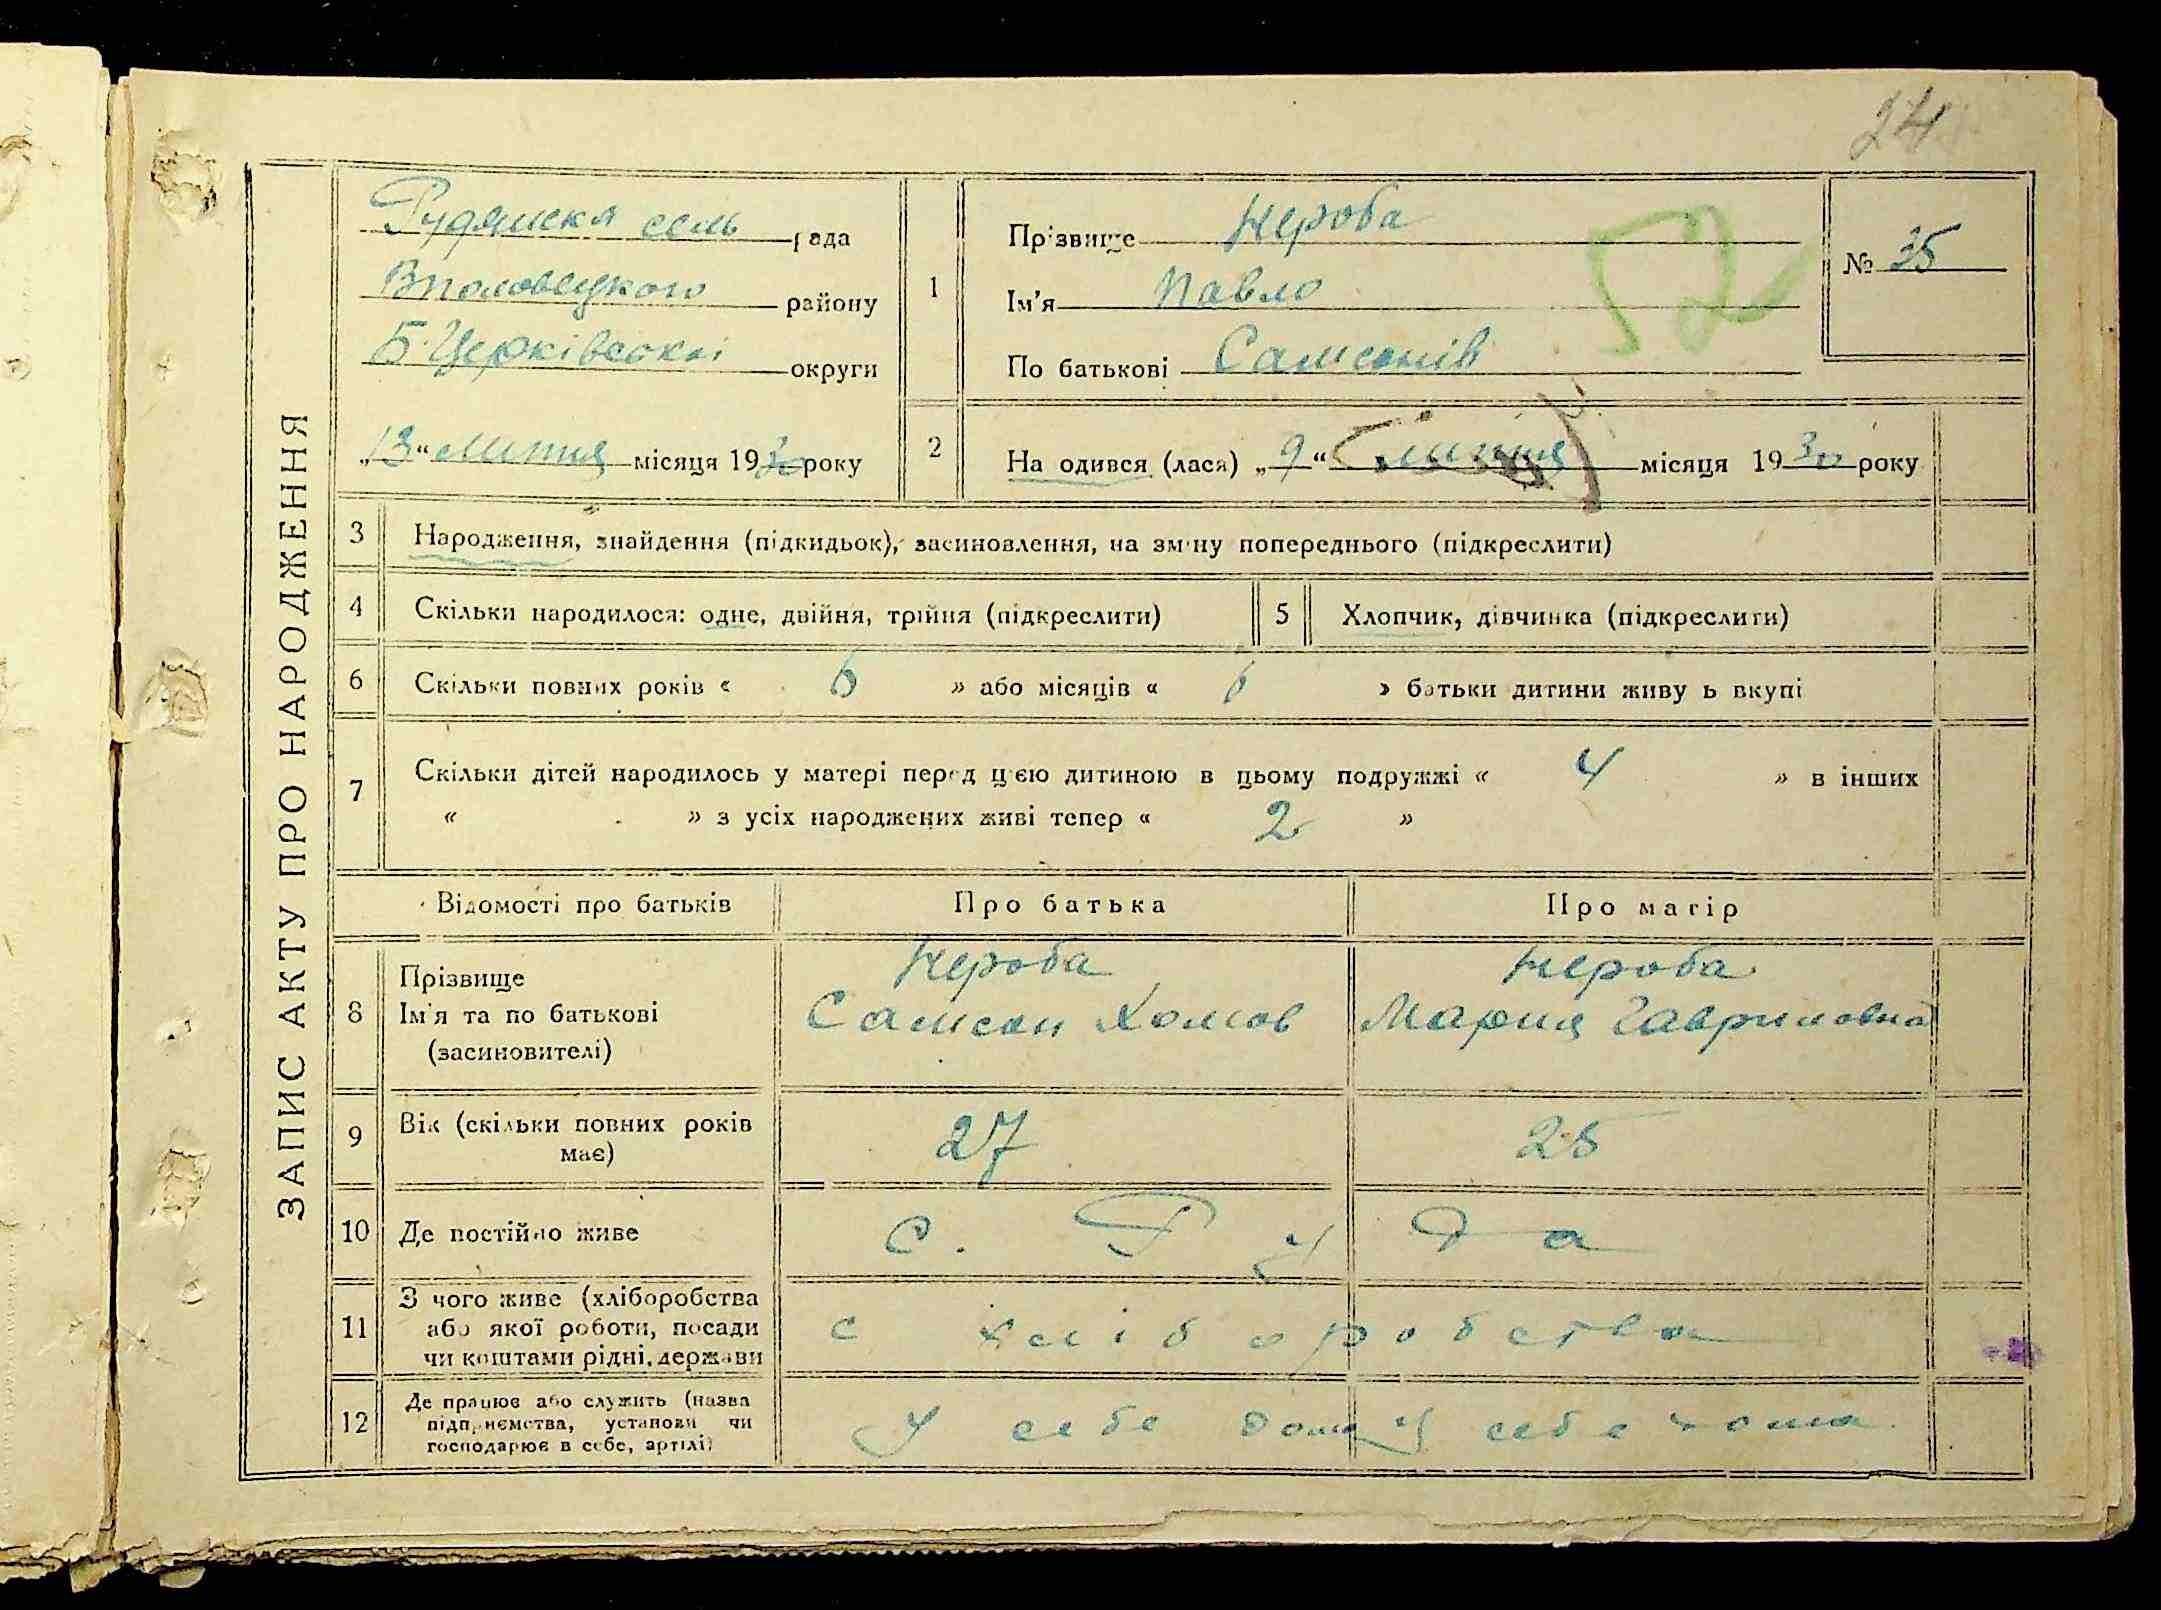 24
ЗАПИС АКТУ ПРО НАРОДЖЕННЯ
Рудянска сель рада
Вполовецкого району
Б-Церківської округи
„13“ Липня місяця 1930 року
1
Прізвище Нероба
Ім'я Павло
По батькові Самсонів
№ 35
2
Народився (лася) „9“ липня місяця 1930 року
3 Народження, знайдення (підкидьок), засиновлення, на зміну попереднього (підкреслити)
4 Скільки народилося: одне, двійня, трійня (підкреслити) 5 Хлопчик, дівчинка (підкреслити)
6 Скільки повних років « 6 » або місяців « » батьки дитини живуть вкупі
7 Скільки дітей народилось у матері перед цією дитиною в цьому подружжі « 4 » в інших
« » з усіх народжених живі тепер « 2 »
Відомості про батьків Про батька Про матір
8 Прізвище Ім'я та по батькові (засиновителі)
Нероба Нероба
Самсон Хомов Мария Гавриловна
9 Вік (скільки повних років має) 27 25
10 Де постійно живе с. Руда
11 З чого живе (хліборобства або якої роботи, посади чи коштами рідні, держави с хліборобства
12 Де працює або служить (назва підприємства, установи чи господарює в себе, артілі) У себе дома У себе дома